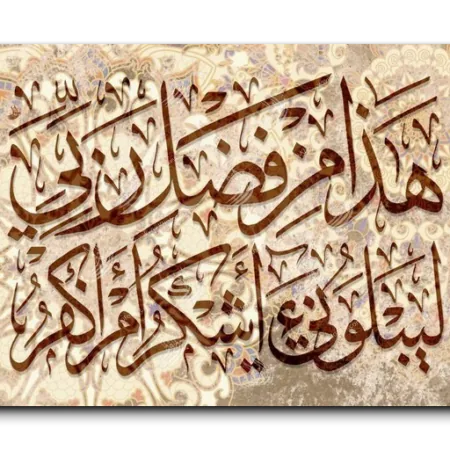 هَذَا مِنْ فَضْلِ رَبِّي
لِيَبْلُوَنِي ءَأَشْكُرُ أَمْ أَكْفُرُ